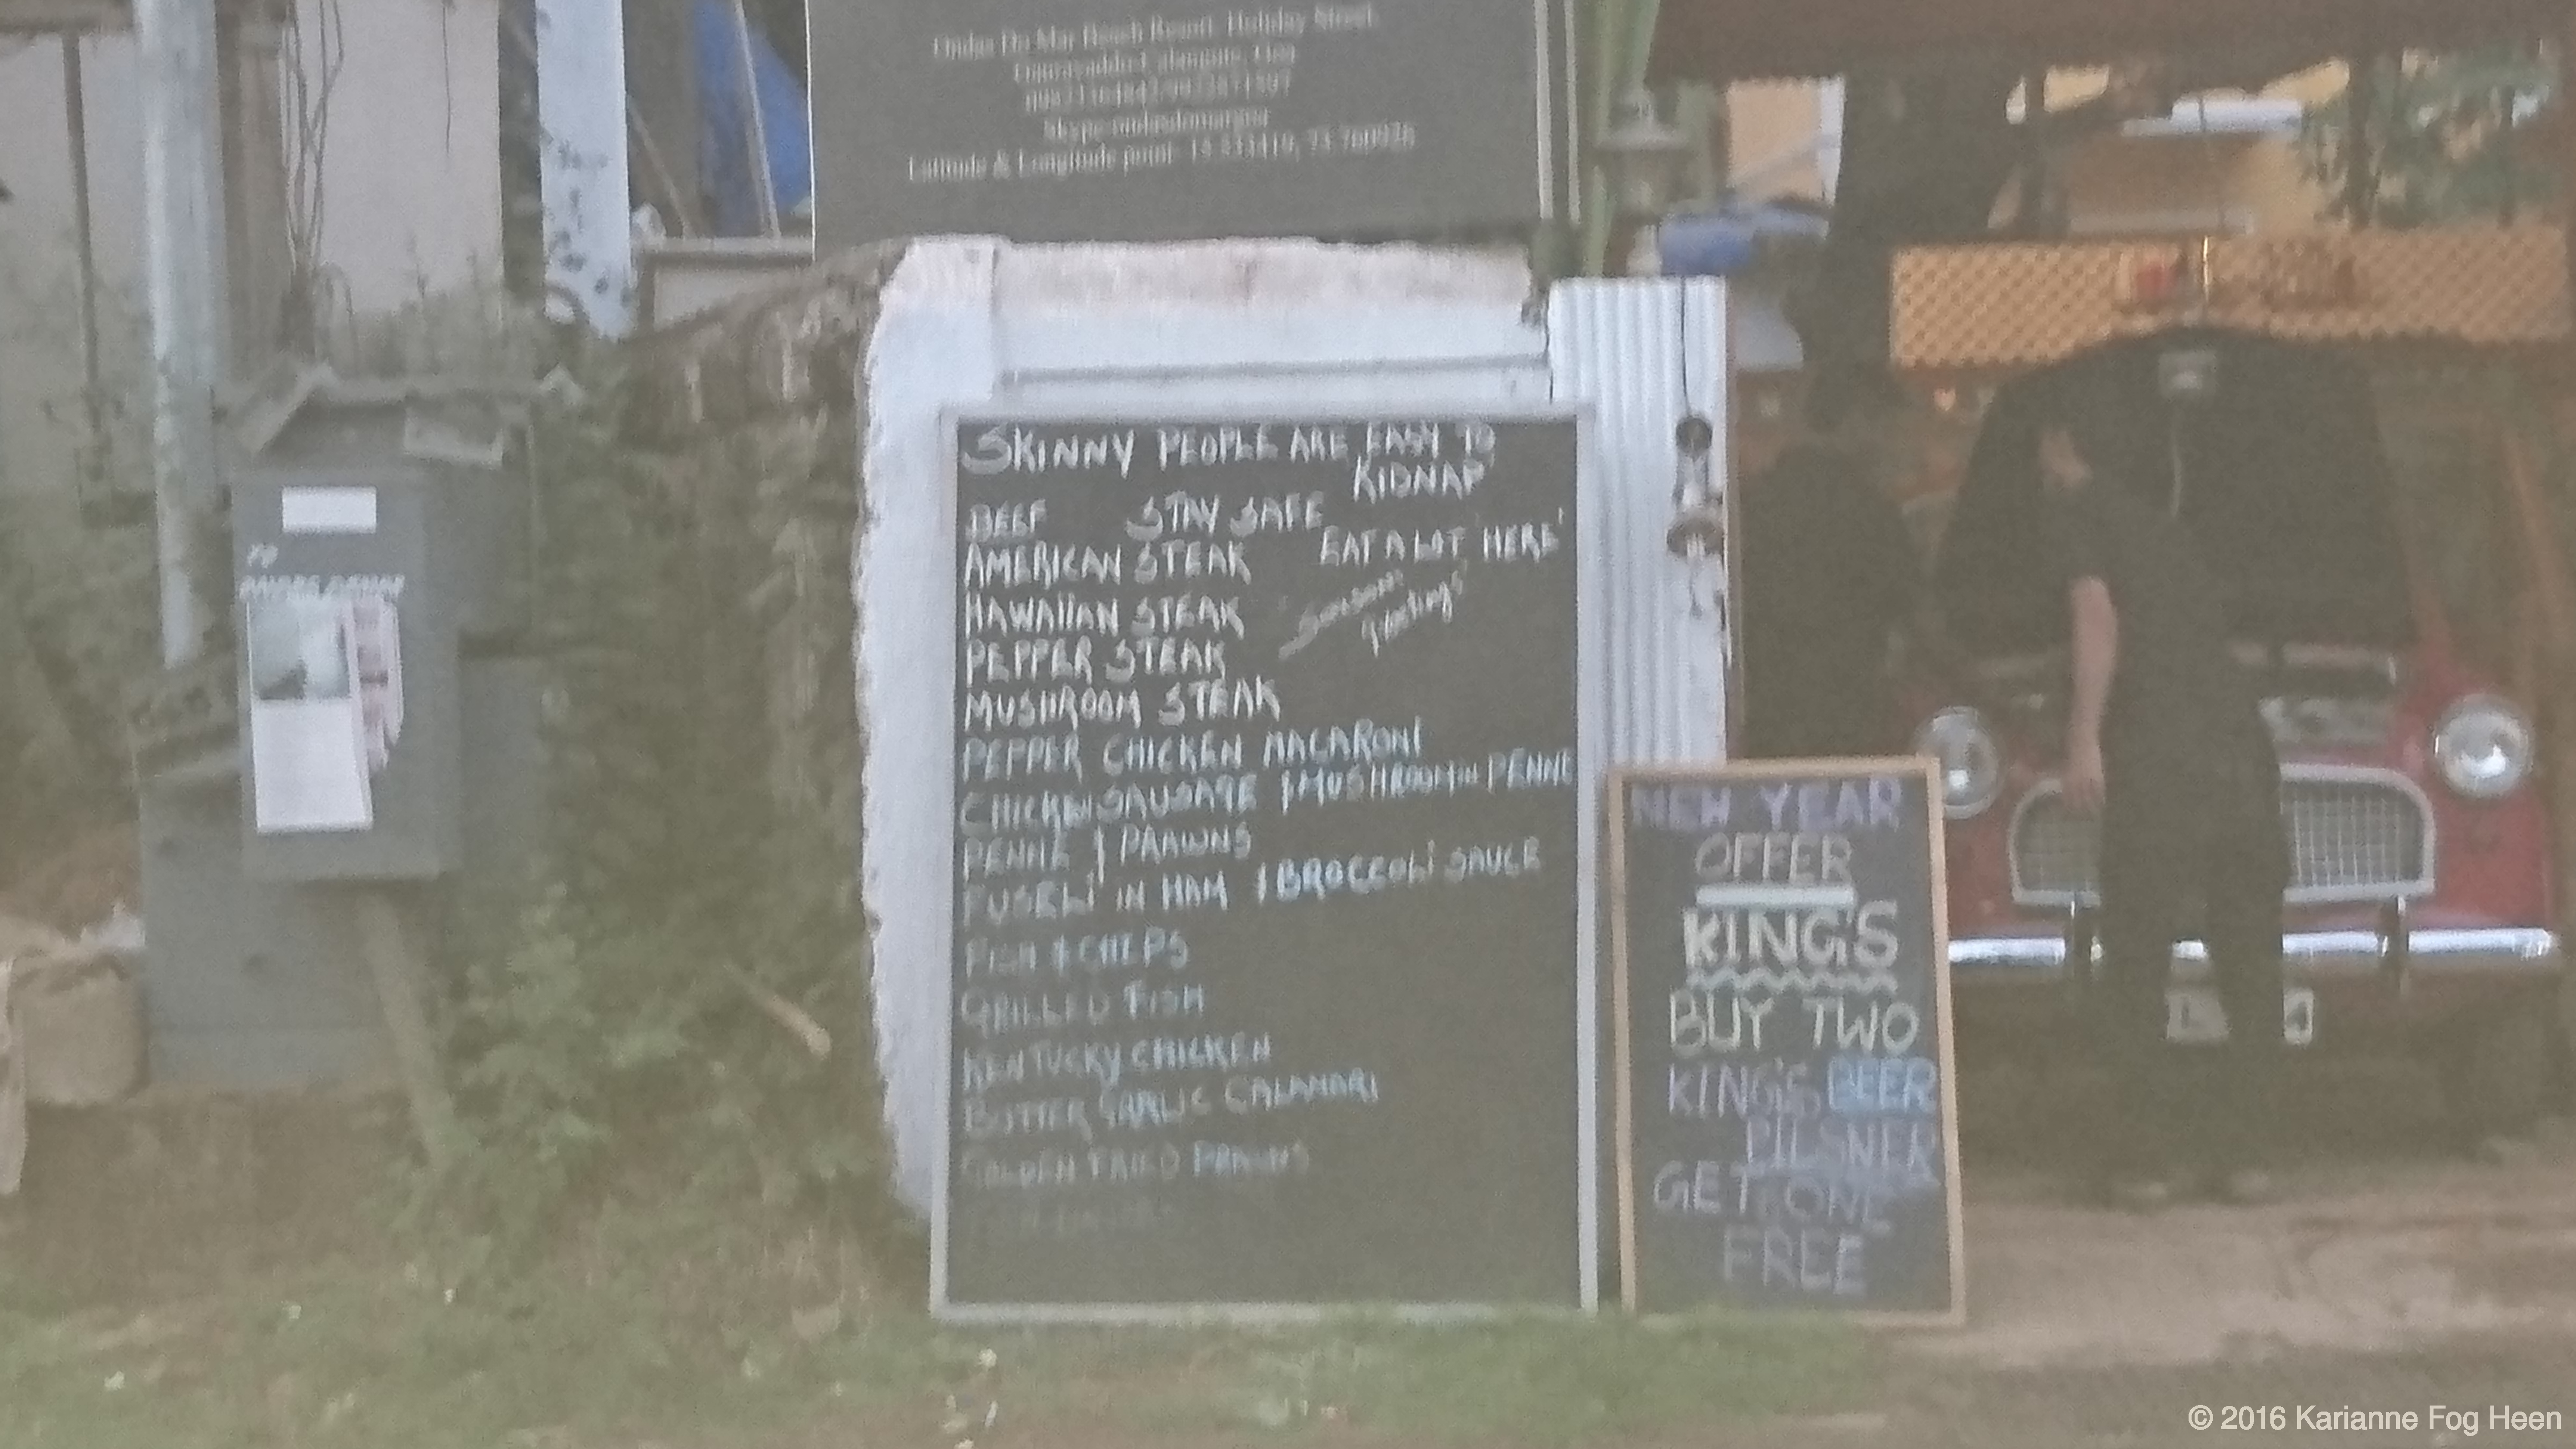 Ondas Do Mar Beach Resort, Holiday Street,
Calangute, Goa
Latitude & Longitude point:
SKINNY PEOPLE ARE EASY TO
KIDNAP
BEEF STAY SAFE
EAT A LOT 'HERE'
AMERICAN STEAK
HAWAIIAN STEAK
PEPPER STEAK
MUSHROOM STEAK
PEPPER CHICKEN MACARONI
CHICKEN SAUSAGE & MUSHROOM IN PENNE
PENNE & PRAWNS
FUSELI IN HAM & BROCCOLI SAUCE
FISH & CHIPS
GRILLED FISH
KENTUCKY CHICKEN
BUTTER GARLIC CALAMARI
GOLDEN FRIED PRAWNS
NEW YEAR
OFFER
KING'S
BUY TWO
KING'S BEER
PILSNER
GET ONE
FREE
© 2016 Karianne Fog Heen